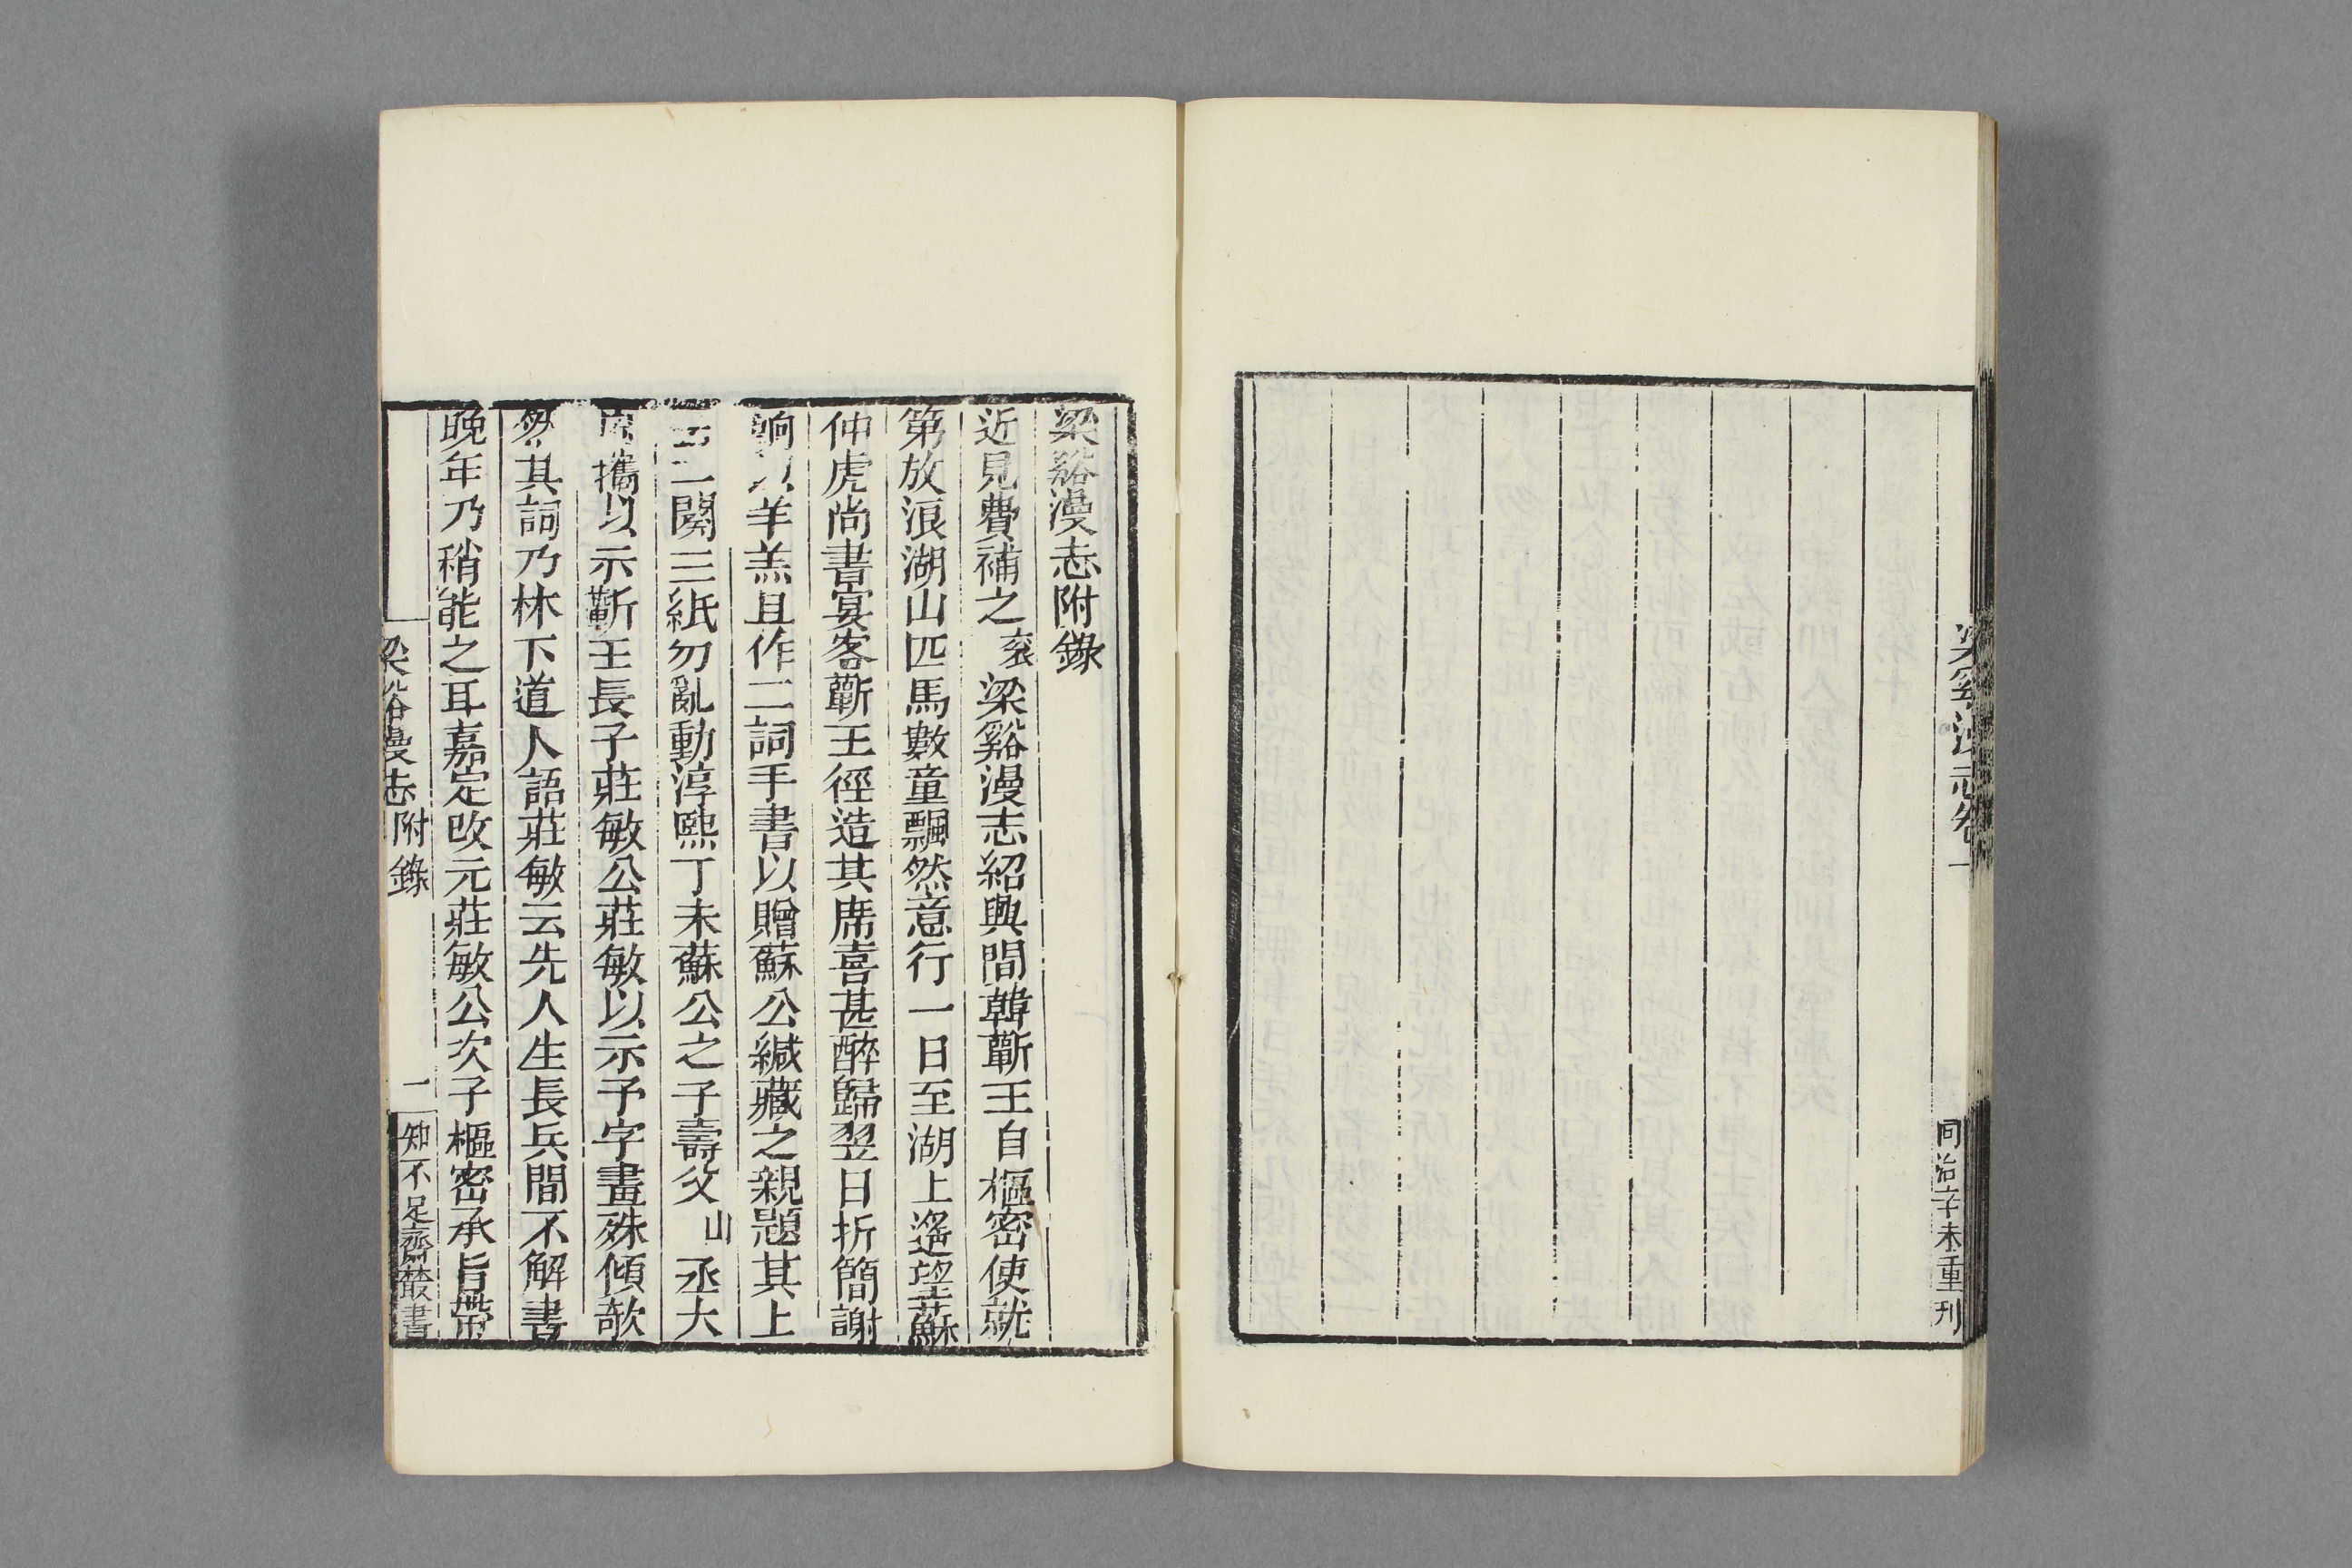 梁谿漫志卷十
同治辛未重刊
梁谿漫志附錄
近見費補之袞梁谿漫志紹興間韓蘄王自樞密使就
第放浪湖山匹馬數童飄然意行一日至湖上遙望蘇
仲虎尚書宴客蘄王徑造其席喜甚醉歸翌日折簡謝
餉以羊羔且作二詞手書以贈蘇公緘藏之親題其上
二闋三紙勿亂動淳熙丁未蘇公之子壽父山丞大
攜以示靳王長子莊敏公莊敏以示予字畫殊傾欹
然其詞乃林下道人語莊敏云先人生長兵間不解書
晚年乃稍能之耳嘉定改元莊敏公次子樞密承旨帶
梁谿漫志附錄
一
知不足齋叢書